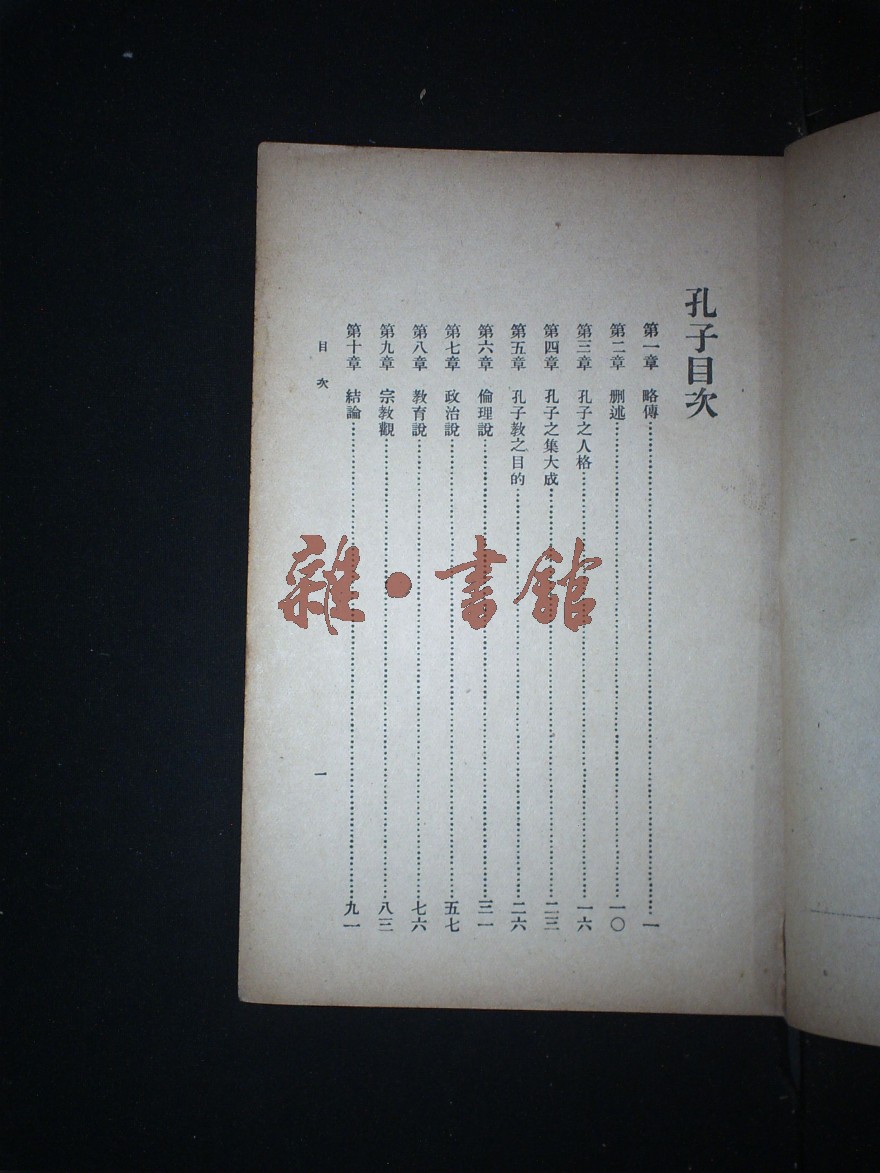 孔子目次
第一章 略傳……一
第二章 刪述……一〇
第三章 孔子之人格……一六
第四章 孔子之集大成……二三
第五章 孔子教之目的……二六
第六章 倫理說……三一
第七章 政治說……五七
第八章 教育說……七六
第九章 宗教觀……八三
第十章 結論……九一
目次 一
雜·書館